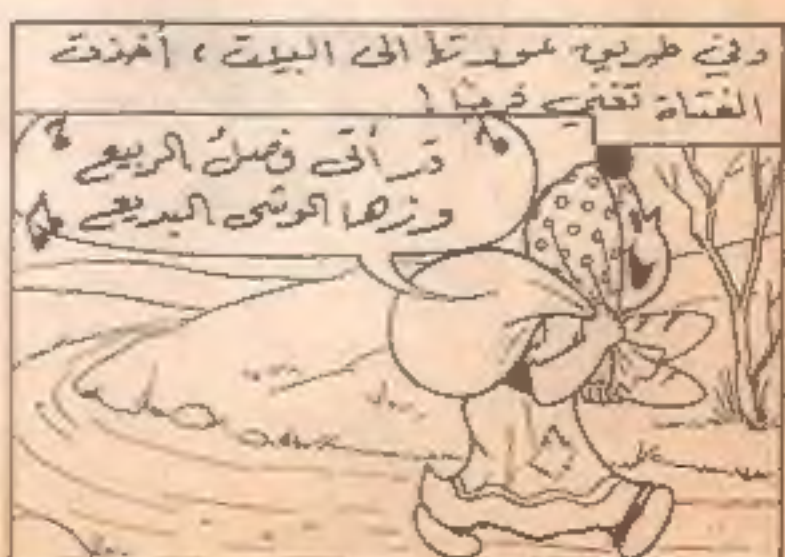 وفي طريق عودتها الى البيت ، أخذت
الفتاة تغني فرحًا !
قد أتى فصل الربيع
وزها الوشي البديع